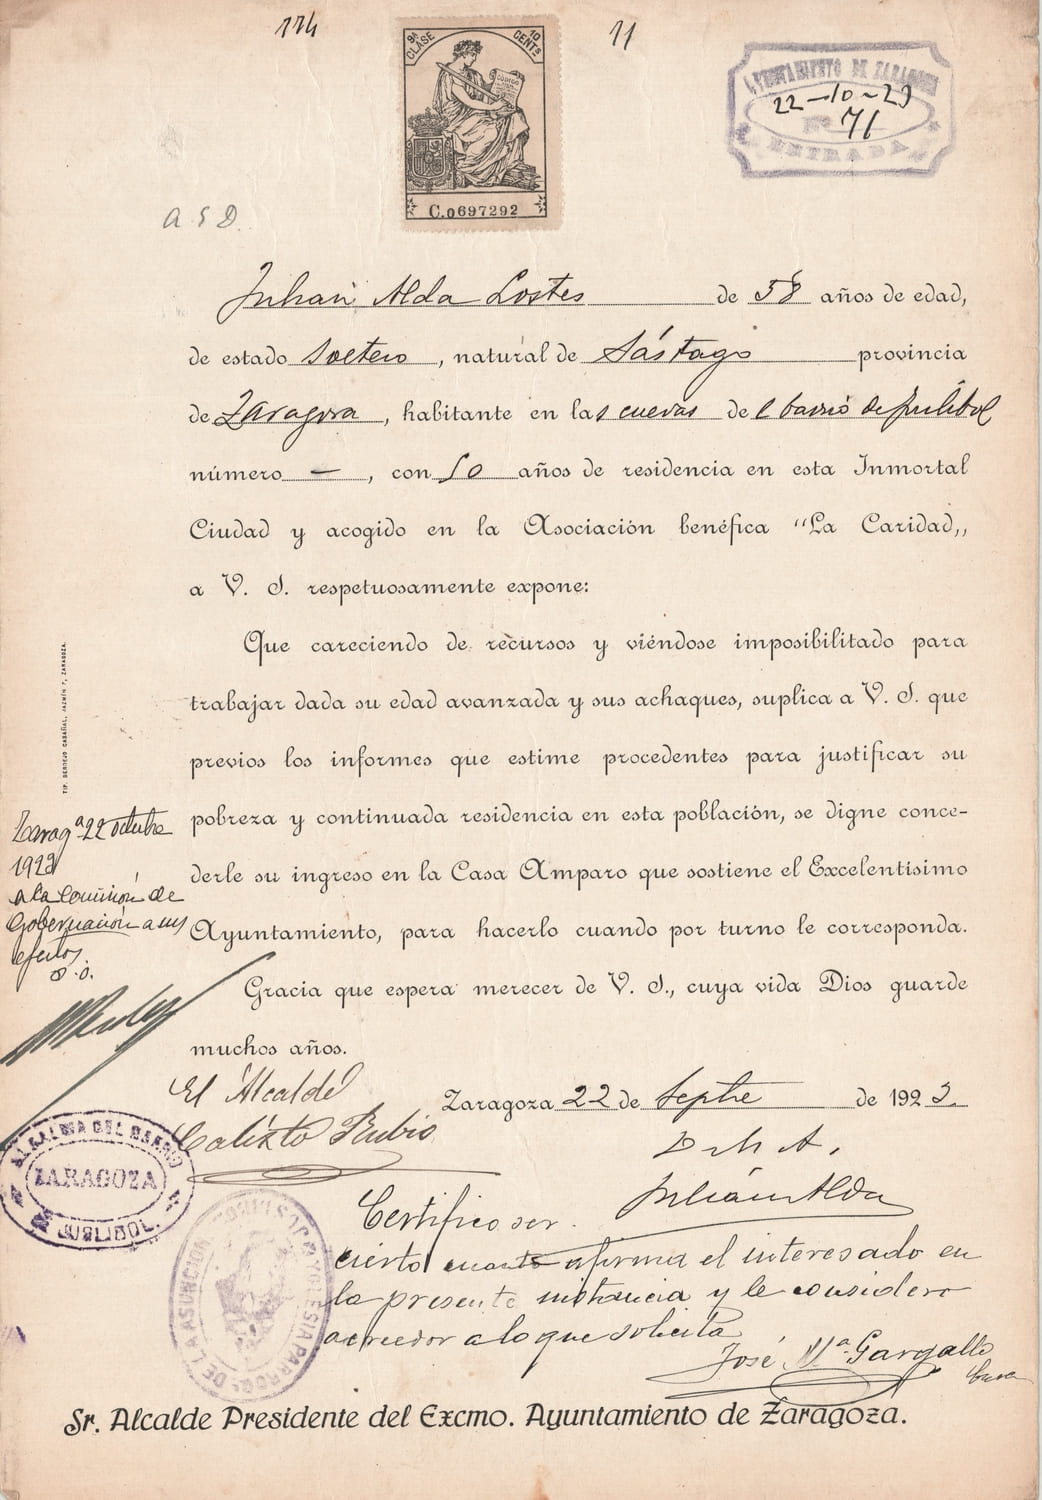 114
11
9ª CLASE
10 CENTS
C.0697292
AYUNTAMIENTO DE ZARAGOZA
22-10-23
Nº 71
ENTRADA
A S D.
Julian Alda Lostes de 58 años de edad,
de estado soltero, natural de Sástago provincia
de Zaragoza, habitante en las cuevas del barrio de Juslibol
número —, con 50 años de residencia en esta Inmortal
Ciudad y acogido en la Asociación benéfica "La Caridad,,
a V. I. respetuosamente expone:
Que careciendo de recursos y viéndose imposibilitado para
trabajar dada su edad avanzada y sus achaques, suplica a V. I. que
previos los informes que estime procedentes para justificar su
pobreza y continuada residencia en esta población, se digne conce-
derle su ingreso en la Casa Amparo que sostiene el Excelentísimo
Ayuntamiento, para hacerlo cuando por turno le corresponda.
Gracia que espera merecer de V. I., cuya vida Dios guarde
muchos años.
TIP. BERDEJO CASAÑAL, JAZMÍN 7, ZARAGOZA.
Zaragª 22 octubre
1923
a la Comisión de
Gobernación a sus
efectos.
Zaragoza 22 de Septre de 1923.
El Alcalde
Calixto Rubio
ALCALDIA DEL BARRIO
ZARAGOZA
JUSLIBOL
Julián Alda
Certifico ser
cierto cuanto afirma el interesado en
la presente instancia y le considero
acreedor a lo que solicita
José Mª Gargallo
Cura
IGLESIA PARROQ. DE LA ASUNCION
Sr. Alcalde Presidente del Excmo. Ayuntamiento de Zaragoza.